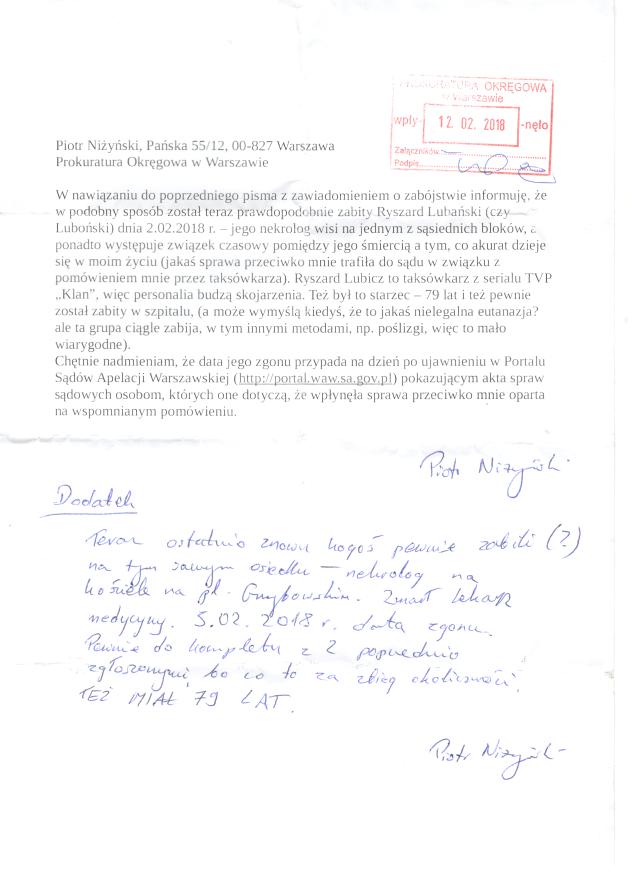 PROKURATURA OKRĘGOWA
w Warszawie
wpły- 12. 02. 2018 -nęło
Załączników
Podpis
Piotr Niżyński, Pańska 55/12, 00-827 Warszawa
Prokuratura Okręgowa w Warszawie
W nawiązaniu do poprzedniego pisma z zawiadomieniem o zabójstwie informuję, że
w podobny sposób został teraz prawdopodobnie zabity Ryszard Lubański (czy
Luboński) dnia 2.02.2018 r. – jego nekrolog wisi na jednym z sąsiednich bloków, a
ponadto występuje związek czasowy pomiędzy jego śmiercią a tym, co akurat dzieje
się w moim życiu (jakaś sprawa przeciwko mnie trafiła do sądu w związku z
pomówieniem mnie przez taksówkarza). Ryszard Lubicz to taksówkarz z serialu TVP
„Klan”, więc personalia budzą skojarzenia. Też był to starzec – 79 lat i też pewnie
został zabity w szpitalu, (a może wymyślą kiedyś, że to jakaś nielegalna eutanazja?
ale ta grupa ciągle zabija, w tym innymi metodami, np. poślizgi, więc to mało
wiarygodne).
Chętnie nadmieniam, że data jego zgonu przypada na dzień po ujawnieniu w Portalu
Sądów Apelacji Warszawskiej (http://portal.waw.sa.gov.pl) pokazującym akta spraw
sądowych osobom, których one dotyczą, że wpłynęła sprawa przeciwko mnie oparta
na wspomnianym pomówieniu.
Piotr Niżyński
Dodatek
Teraz ostatnio znowu kogoś pewnie zabili (?)
na tym samym osiedlu – nekrolog na
kościele na pl. Grzybowskim. Zmarł lekarz
medycyny. 5.02.2018 r. data zgonu.
Pewnie do kompletu z 2 poprzednio
zgłoszonymi, bo co to za zbieg okoliczności,
TEŻ MIAŁ 79 LAT.
Piotr Niżyński